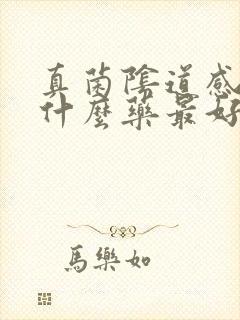 真菌陰道感
什麼藥最好
馬樂如